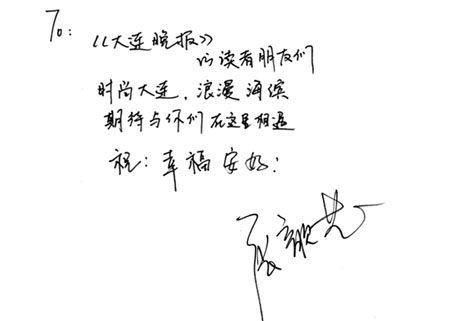 To:
《大连晚报》
的读者朋友们
时尚大连，浪漫海滨
期待与你们在这里相遇
祝：幸福安好！